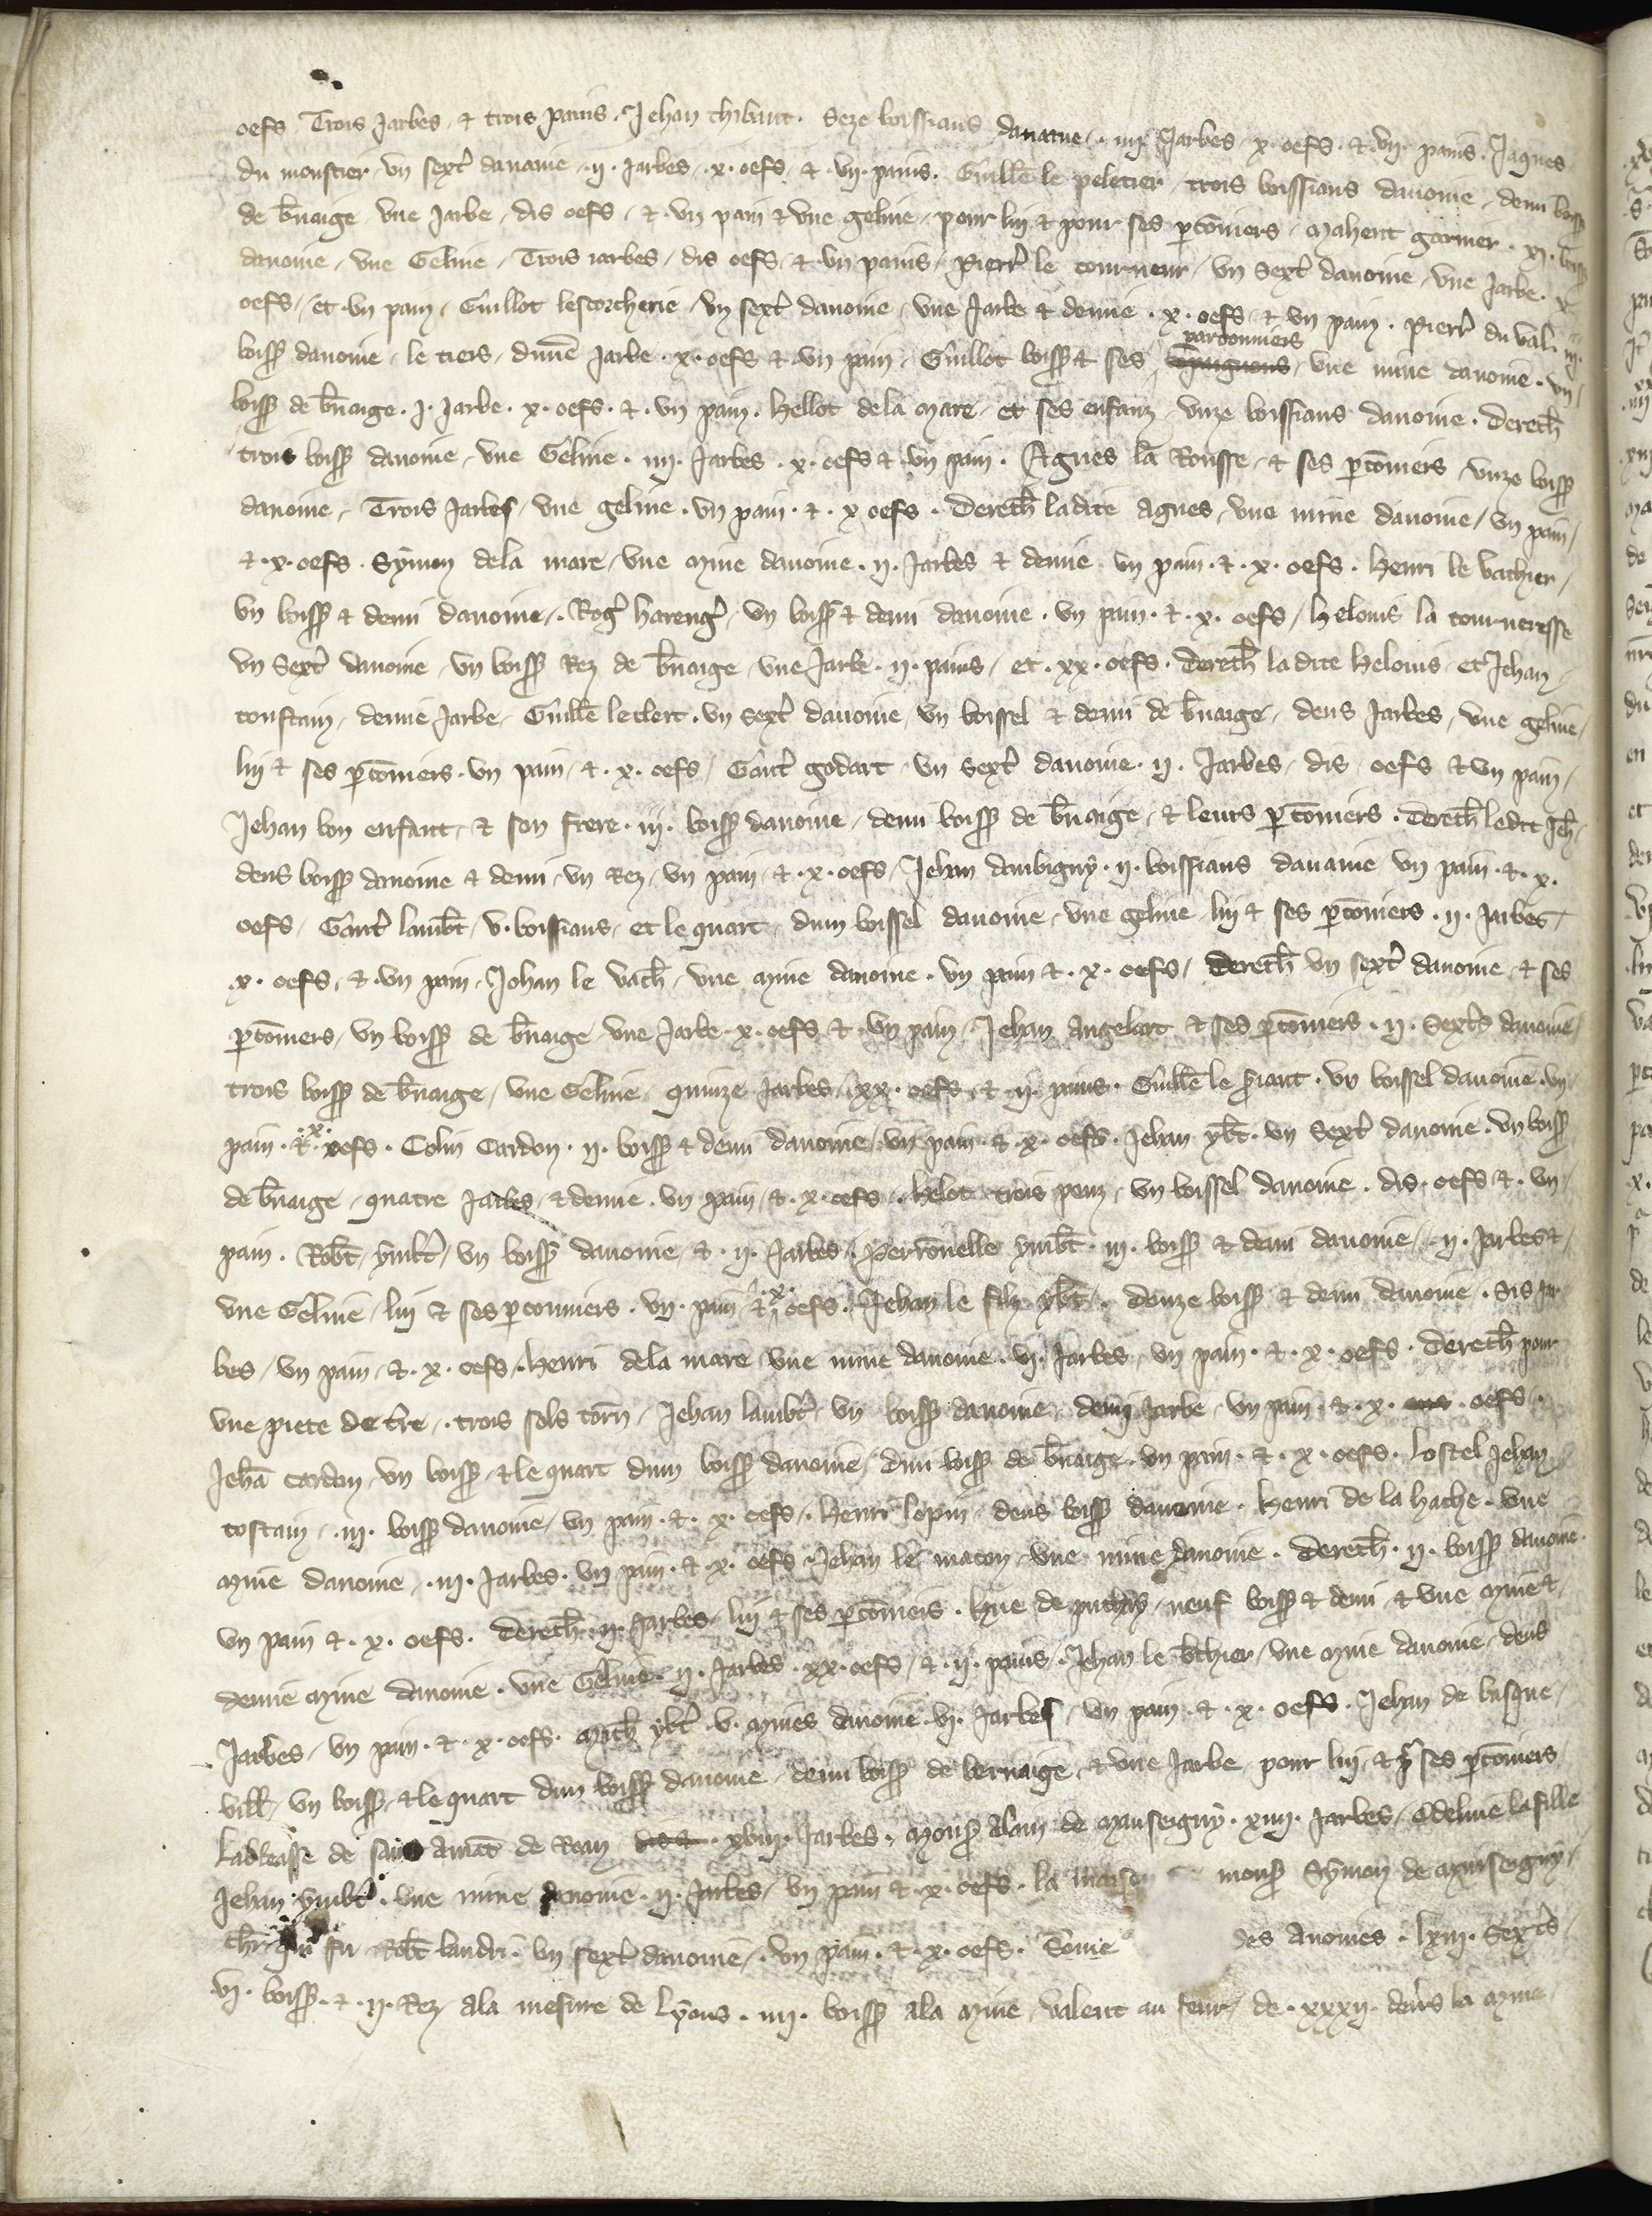 oefs Trois Jarbes et trois pains. Jehan thibaut. Seze boissiaus dauaine. .iiij. Jarbes .x. oefs. et .vn. pains. Jaques
du moustier vn sext' dauaine .ij. Jarbes .x. oefs et .vn. pains. Guill'e le peletier trois boissiaus dauoine demi boiss'
de b'naige vne Jarbe dis oefs et vn pain et vne geline pour lui et pour ses p'conniers Mahent garnier .xi. boiss'
dauoine vne Geline Trois iarbes dis oefs et vn pains Pierr' le tourneur vn Sext' dauoine vne Jarbe .x.
oefs et vn pain Guillot lescorcherie vn sext' dauoine vne Jarbe et demie .x. oefs et vn pain. Pierr' du val .iij.
boiss' dauoine le tiers dune Jarbe .x. oefs et vn pain Guillot boiss' et ses parconniers vne mine dauoine .vn.
boiss' de b'naige .j. Jarbe .x. oefs. et .vn pain. Hellot dela Mare et ses enfanz vnze boissiaus dauoine. Derech'
trois boiss' dauoine vne Geline .iiij. Jarbes .x. oefs et vn pain. Agnes la Rousse et ses p'conniers vnze boiss'
dauoine Trois Jarbes vne geline .vn pain. et .x oefs. Derech' ladite Agnes vne mine dauoine vn pain
et .x. oefs. Symon dela mare vne Mine dauoine .ij. Jarbes et demie vn pain. et .x. oefs. Henri le vachier
vn boiss' et demi dauoine. Rog' hareng' vn boiss' et demi dauoine. vn pain. et .x. oefs Helouis la tourneresse
vn Sext' dauoine vn boiss' Rez de b'naige vne Jarbe .ij. pains et .xx. oefs. Derech' ladite Helouis et Jehan
constain demie Jarbe Guill'e leclerc. vn Sext' dauoine vn boissel et demi de b'naige deus Jarbes vne geline
lui et ses p'conniers. vn pain et .x. oefs Gaut' godart vn Sext' dauoine .ij. Jarbes dis oefs et vn pain
Jehan bon enfant et son frere .iij. boiss' dauoine demi boiss' de b'naige et leurs p'conniers. Derech' ledit Jeh'
deus boiss' dauoine et demi vn Rez vn pain et .x. oefs Jehan daubigny .ij. boissiaus dauaine vn pain. et .x.
oefs Gaut' lamb't .v. boissiaus et le quart dun boissel dauoine vne geline lui et ses p'conniers .ij. Jarbes
.x. oefs et vn pain Johan le vach' vne Mine dauoine. vn pain et .x. oefs Derech' vn sext' dauoine et ses
p'conniers vn boiss' de b'naige vne Jarbe .x. oefs et vn pain Jehan Angelart et ses p'conniers .ij. Sext's dauoine
trois boiss' de b'naige vne Geline quinze Jarbes .xx. oefs et .ij. pains. Guill'e le s'iant. vn boissel dauoine. vn
pain. et .x. oefs. Colin Cardon .ij. boiss' et demi dauoine vn pain et .x. oefs. Jehan yb't. vn Sext' dauoine. vn boiss'
de b'naige quatre Jarbes et demie. vn pain et .x. oefs. Helot trois penz vn boissel dauoine. dis. oefs et. vn
pain. Rob't ymb't vn boiss' dauoine et .ij. Jarbes. Perronnelle ymb't .iij. boiss' et demi dauoine .ij. Jarbes et
vne Geline lui et ses p'conniers. vn. pain et .x. oefs. Jehan le filz yb't. Douze boiss' et demi dauoine. Sis Jar
bes vn pain et .x. oefs. Henri dela mare vne mine dauoine .vj. Jarbes vn pain. et .x. oefs. Derech' pour
vne piece de t're. trois sols torn' Jehan lamb't vn boiss' dauoine demi Jarbe vn pain. et .x. oefs.
Jeh'a Cardon vn boiss' et le quart dun boiss' dauoine dim' boiss' de b'naige. vn pain. et .x. oefs. Lostel Jehan
costain .iij. boiss' dauoine vn pain. et .x. oefs. Henri lopin deus boiss' dauoine. Henri de la hache. vne
Mine dauoine .iij. Jarbes. vn pain. et .x. oefs Jehan le macon vne mine dauoine. Derech' .ij. boiss' dauoine.
vn pain et .x. oefs. Derech' .ij. Jarbes lui et ses p'conniers. Hue de puchay neuf boiss' et demi et vne Mine et
demie Mine dauoine. vne Geline .ij. Jarbes .xx. oefs et .ij. pains Jehan le b'chier vne Mine dauoine deus
Jarbes vn pain. et .x. oefs. Mich' yb't .v. Mines dauoine .vj. Jarbes vn pain. et .x. oefs. Jehan de basque
vill' vn boiss' et le quart dun boiss' dauoine demi boiss' de bernaige et vne Jarbe pour lui et p' ses p'conniers
Labbeasse de saint Amat de Roan .xviij. Jarbes. Mons' Alain de Manseigny .xiiij. Jarbes Odeline lafille
Jehan ymb't. vne mine dauoine .ij. Jarbes vn pain et .x. oefs. la mons' Symon de Manseigny
ch'r qui fu Rob't landri. vn sext' dauoine. vn pain. et .x. oefs. Some des Auoines .lxiij. Sext's
.vj. boiss'. et .ij. Rez ala mesure de Lyons .iiij. boiss' ala Mine valent au feur de .xxxij. den's la Mine